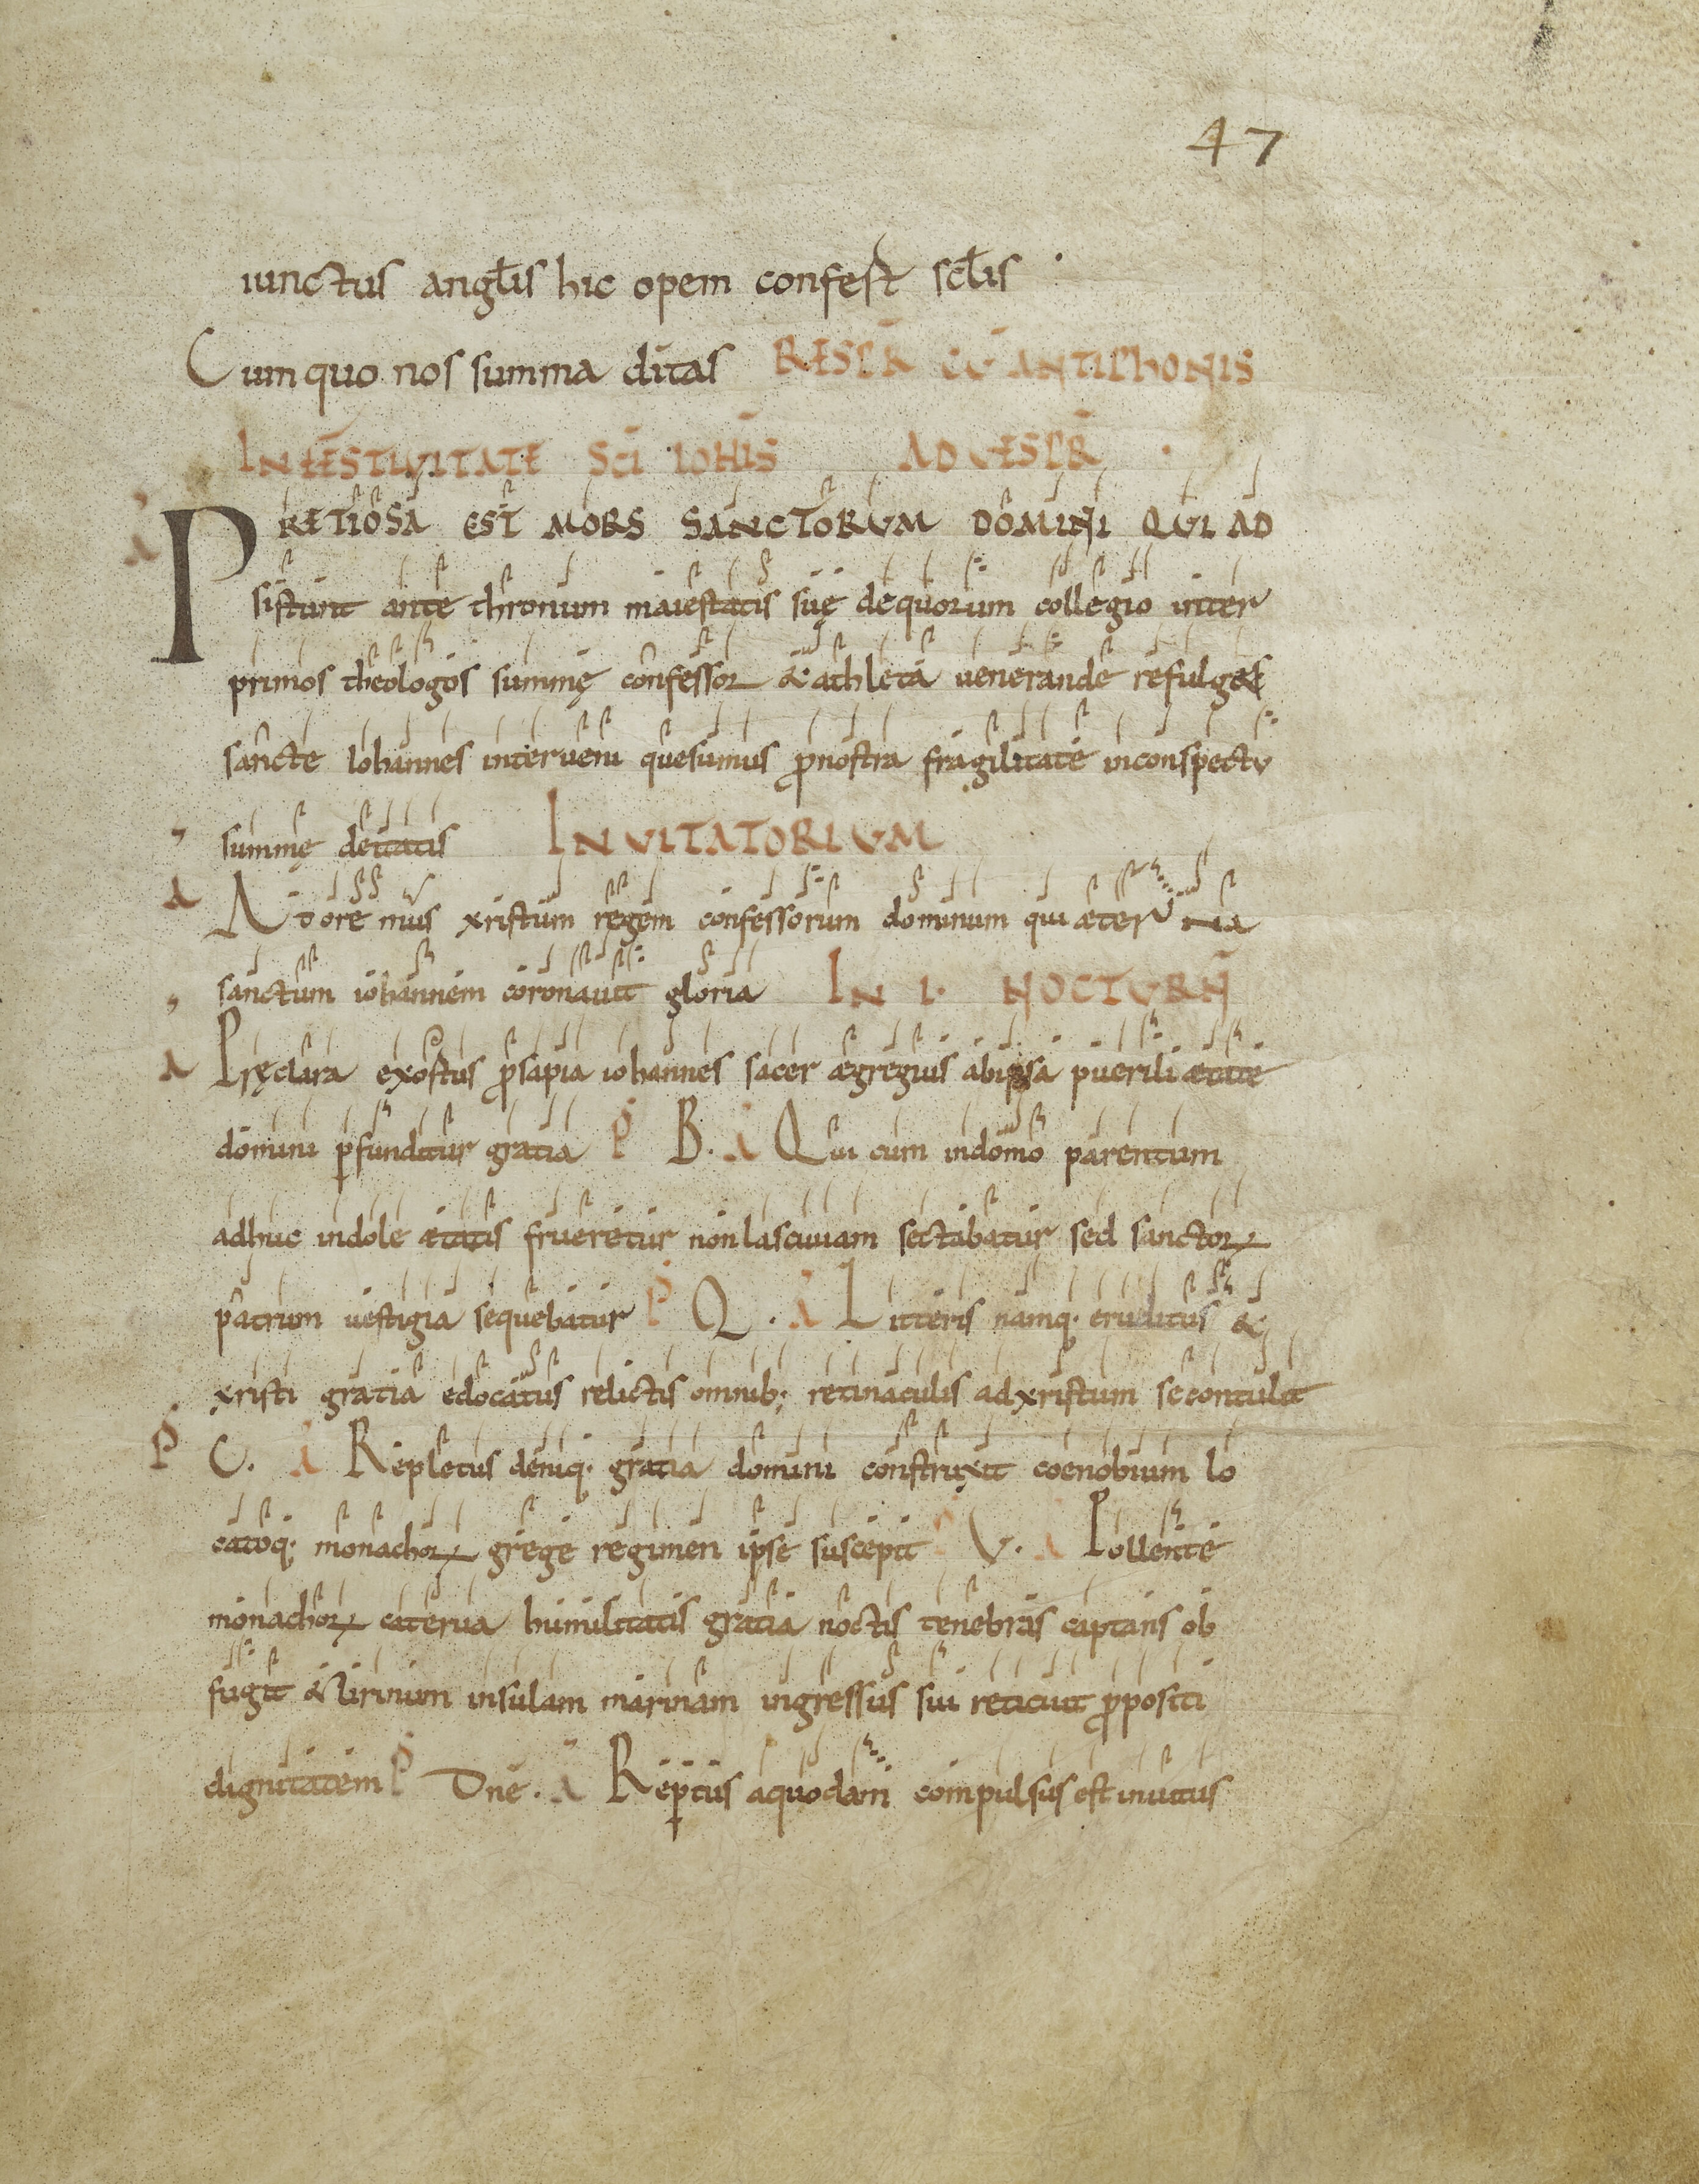 47
iunctus anglis hic opem confest sclis
Cum quo nos summa ditas RESPR CU ANTIPHONIS
IN FESTIVITATE SCI IOHIS AD VESPR
A PRETIOSA EST MORS SANCTORUM DOMINI QUI AD
sistunt ante thronum maiestatis suę de quorum collegio inter
primos theologos summę confessor & athleta venerande refulges
sancte Iohannes interveni quesumus pro nostra fragilitate in conspectu
summę deitatis INVITATORIUM
A Adoremus xristum regem confessorum dominum qui æterna
sanctum iohannem coronavit gloria IN I. NOCTURN
A Pręclara exortus prosapia iohannes sacer ægregius ab ipsa puerili ætate
domini pfunditur gratia P B. A Qui cum in domo parentum
adhuc indole ætatis frueretur non lasciviam sectabatur sed sanctoꝝ
patrum vestigia sequebatur P Q. A Litteris namq. eruditus &
xristi gratia edocatus relictis omnib; retinaculis ad xristum se contulit
P C. A Repletus deniq. gratia domini construxit coenobium lo
catoq; monachoꝝ grege regimen ipse suscepit P V. A Pollente
monachoꝝ caterva humilitatis gratia noctis tenebras captans ob
fugit & lirinum insulam marinam ingressus sui reticuit ppositi
dignitatem P Dne. A Reptus a quodam compulsus est invitus